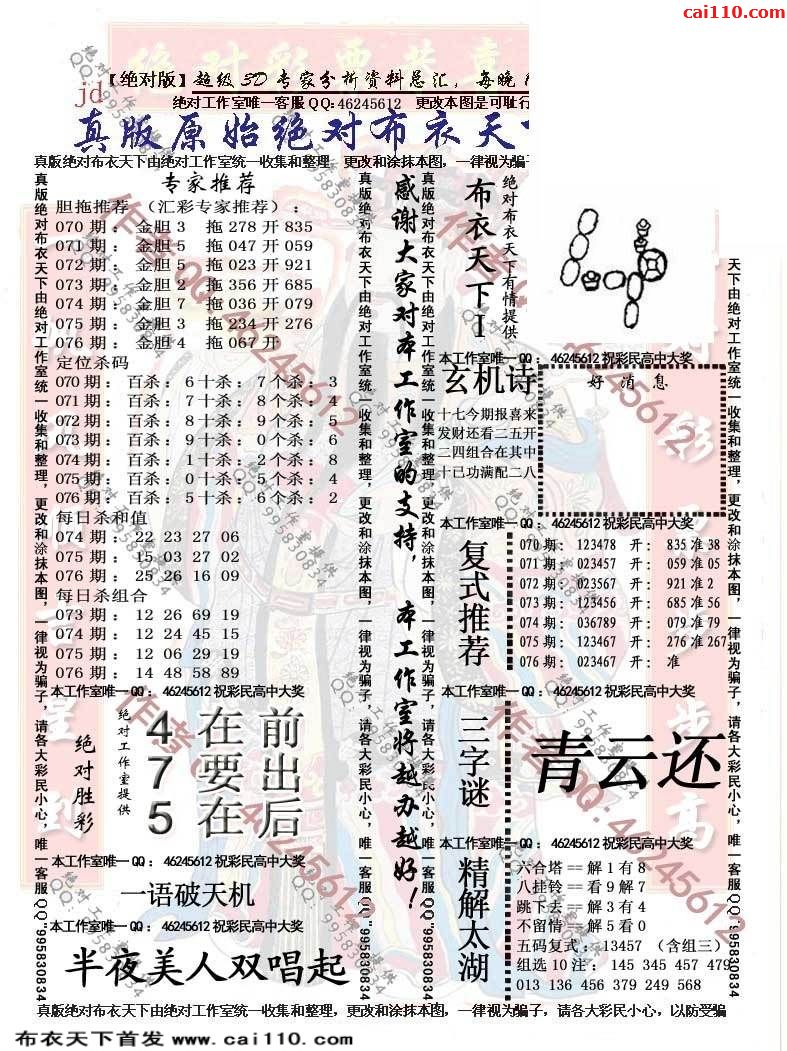 cai110.com
【绝对版】超级3D专家分析资料总汇，每晚
jd
绝对工作室唯一客服QQ:46245612 更改本图是可耻行
真版原始绝对布衣天
真版绝对布衣天下由绝对工作室统一收集和整理，更改和涂抹本图，一律视为骗
真版绝对布衣天下由绝对工作室统一收集和整理，更改和涂抹本图，一律视为骗子，请各大彩民小心，唯一客服QQ"995830834
专家推荐
胆拖推荐 （汇彩专家推荐）：
070期：金胆3 拖278开835
071期：金胆5 拖047开059
072期：金胆5 拖023开921
073期：金胆2 拖356开685
074期：金胆7 拖036开079
075期：金胆3 拖234开276
076期：金胆4 拖067开
定位杀码
070期：百杀：6十杀：7个杀：3
071期：百杀：7十杀：8个杀：4
072期：百杀：8十杀：9个杀：5
073期：百杀：9十杀：0个杀：6
074期：百杀：1十杀：2个杀：8
075期：百杀：0十杀：5个杀：4
076期：百杀：5十杀：6个杀：2
每日杀和值
074期：22 23 27 06
075期：15 03 27 02
076期：25 26 16 09
每日杀组合
073期：12 26 69 19
074期：12 24 45 15
075期：12 06 29 19
076期：14 48 58 89
本工作室唯一QQ：46245612祝彩民高中大奖
绝对胜彩
绝对工作室提供
4 在 前
7 要 出
5 在 后
本工作室唯一QQ：46245612祝彩民高中大奖
一语破天机
本工作室唯一QQ：46245612祝彩民高中大奖
半夜美人双唱起
真版绝对布衣天下由绝对工作室统一收集和整理，更改和涂抹本图，一律视为骗子，请各大彩民小心，唯一客服QQ"995830834
感谢大家对本工作室的支持，本工作室将越办越好！
真版绝对布衣天下由绝对工作室统一收集和整理，更改和涂抹本图，一律视为骗子，请各大彩民小心，唯一客服QQ"995830834
布衣天下I
绝对布衣天下有情提供
本工作室唯一QQ：46245612祝彩民高中大奖
玄机诗
十七今期报喜来
发财还看二五开
二四组合在其中
十已功满配二八
好消息
本工作室唯一QQ：46245612祝彩民高中大奖
复式推荐
070期：123478 开：835准38
071期：023457 开：059准05
072期：023567 开：921准2
073期：123456 开：685准56
074期：036789 开：079准79
075期：123467 开：276准267
076期：023467 开： 准
本工作室唯一QQ：46245612祝彩民高中大奖
三字谜
青云还
本工作室唯一QQ：46245612祝彩民高中大奖
精解太湖
六合塔==解1有8
八挂铃==看9解7
跳下去==解3有4
不留情==解5看0
五码复式：13457 （含组三）
组选10注：145 345 457 479
013 136 456 379 249 568
天下由绝对工作室统一收集和整理，更改和涂抹本图，一律视为骗子，请各大彩民小心，唯一客服QQ"995830834
真版绝对布衣天下由绝对工作室统一收集和整理，更改和涂抹本图，一律视为骗子，请各大彩民小心，以防受骗
布衣天下首发 www.cai110.com
作者QQ:46245612
绝对工作室提供
QQ:995830834